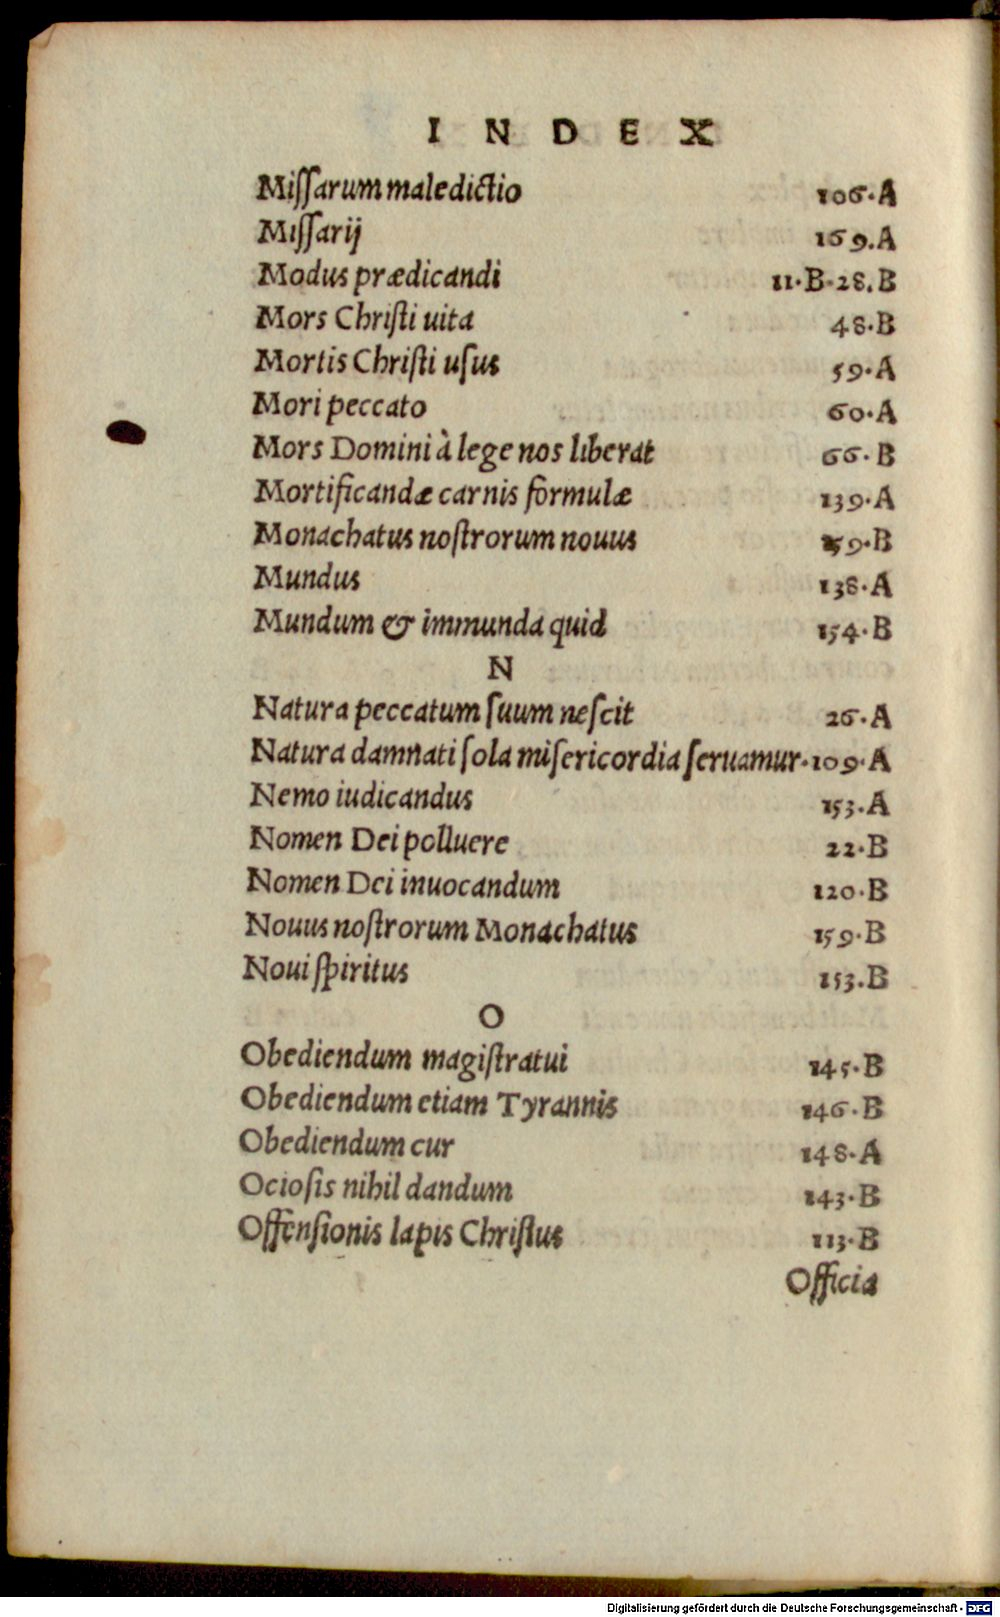 INDEX
Miſſarum maledictio 106·A
Miſſarij 169.A
Modus prædicandi 11·B·28.B
Mors Chriſti uita 48·B
Mortis Chriſti uſus 59·A
Mori peccato 60·A
Mors Domini à lege nos liberat 66·B
Mortificandæ carnis formulæ 139·A
Monachatus noſtrorum nouus 159·B
Mundus 138·A
Mundum & immunda quid 154·B
N
Natura peccatum ſuum neſcit 26·A
Natura damnati ſola miſericordia ſeruamur·109·A
Nemo iudicandus 153·A
Nomen Dei polluere 22·B
Nomen Dei inuocandum 120·B
Nouus noſtrorum Monachatus 159·B
Noui ſpiritus 153.B
O
Obediendum magiſtratui 145·B
Obediendum etiam Tyrannis 146·B
Obediendum cur 148·A
Ocioſis nihil dandum 143·B
Offenſionis lapis Chriſtus 113·B
Officia
Digitalisierung gefördert durch die Deutsche Forschungsgemeinschaft - DFG